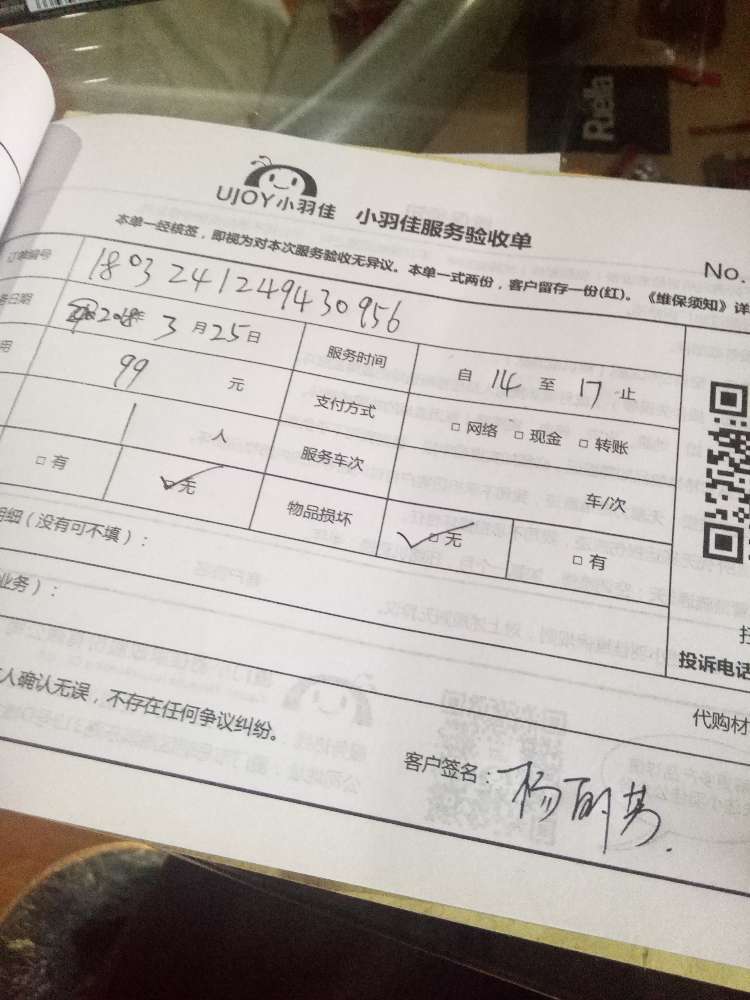 Ruella
UJOY小羽佳 小羽佳服务验收单
No.
本单一经核签，即视为对本次服务验收无异议。本单一式两份，客户留存一份(红)。《维保须知》详
订单编号 1803241249430956
务日期 2018年 3月25日 服务时间 自 14 至 17 止
用 99 元 支付方式 □ 网络 □ 现金 □ 转账
1 人 服务车次 车/次
□ 有 □ 无 物品损坏 □ 无 □ 有
明细（没有可不填）：
业务）：
投诉电话
人确认无误，不存在任何争议纠纷。
代购材
客户签名：杨